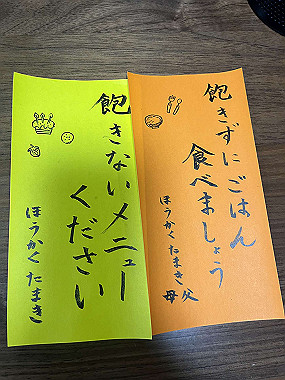 飽きずにごはん
食べましょう
ほうかくたまき
母父
飽きないメニュー
ください
ほうかくたまき